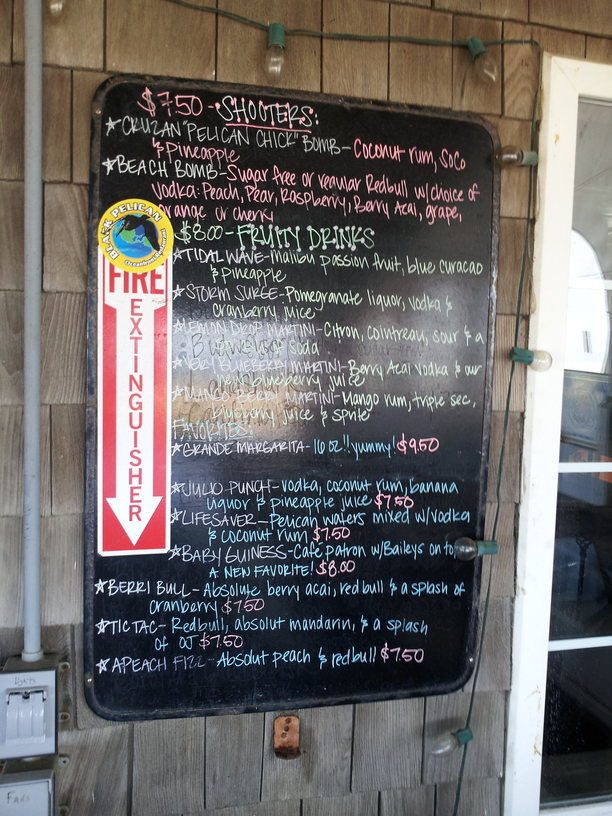 $7.50 - SHOOTERS:
★CRUZAN "PELICAN CHICK" BOMB - Coconut rum, SoCo
& Pineapple
★BEACH BOMB - Sugar free or regular Redbull w/choice of
Vodka: Peach, Pear, Raspberry, Berry Acai, grape,
orange or cherry
BLACK PELICAN
$8.00 - FRUITY DRINKS
★TIDAL WAVE - Malibu passion fruit, blue curacao
& pineapple
★STORM SURGE - Pomegranate liquor, vodka &
cranberry juice
★LEMON DROP MARTINI - Citron, cointreau, sour & a
soda
★VERY BLUEBERRY MARTINI - Berry Acai vodka & our
blueberry juice
★MANGO BERRY MARTINI - Mango rum, triple sec,
blueberry juice & sprite
FAVORITES:
★GRANDE MARGARITA - 16 oz!! yummy! $9.50
★JULIO PUNCH - vodka, coconut rum, banana
liquor & pineapple juice $7.50
★LIFESAVER - Pelican waters mixed w/vodka
& coconut rum $7.50
★BABY GUINESS - Café patron w/Baileys on top
A NEW FAVORITE! $8.00
★BERRI BULL - Absolute berry acai, redbull & a splash of
cranberry $7.50
★TIC TAC - Redbull, absolut mandarin, & a splash
of OJ $7.50
★APEACH FIZZ - Absolut peach & redbull $7.50
FIRE
EXTINGUISHER
FANS